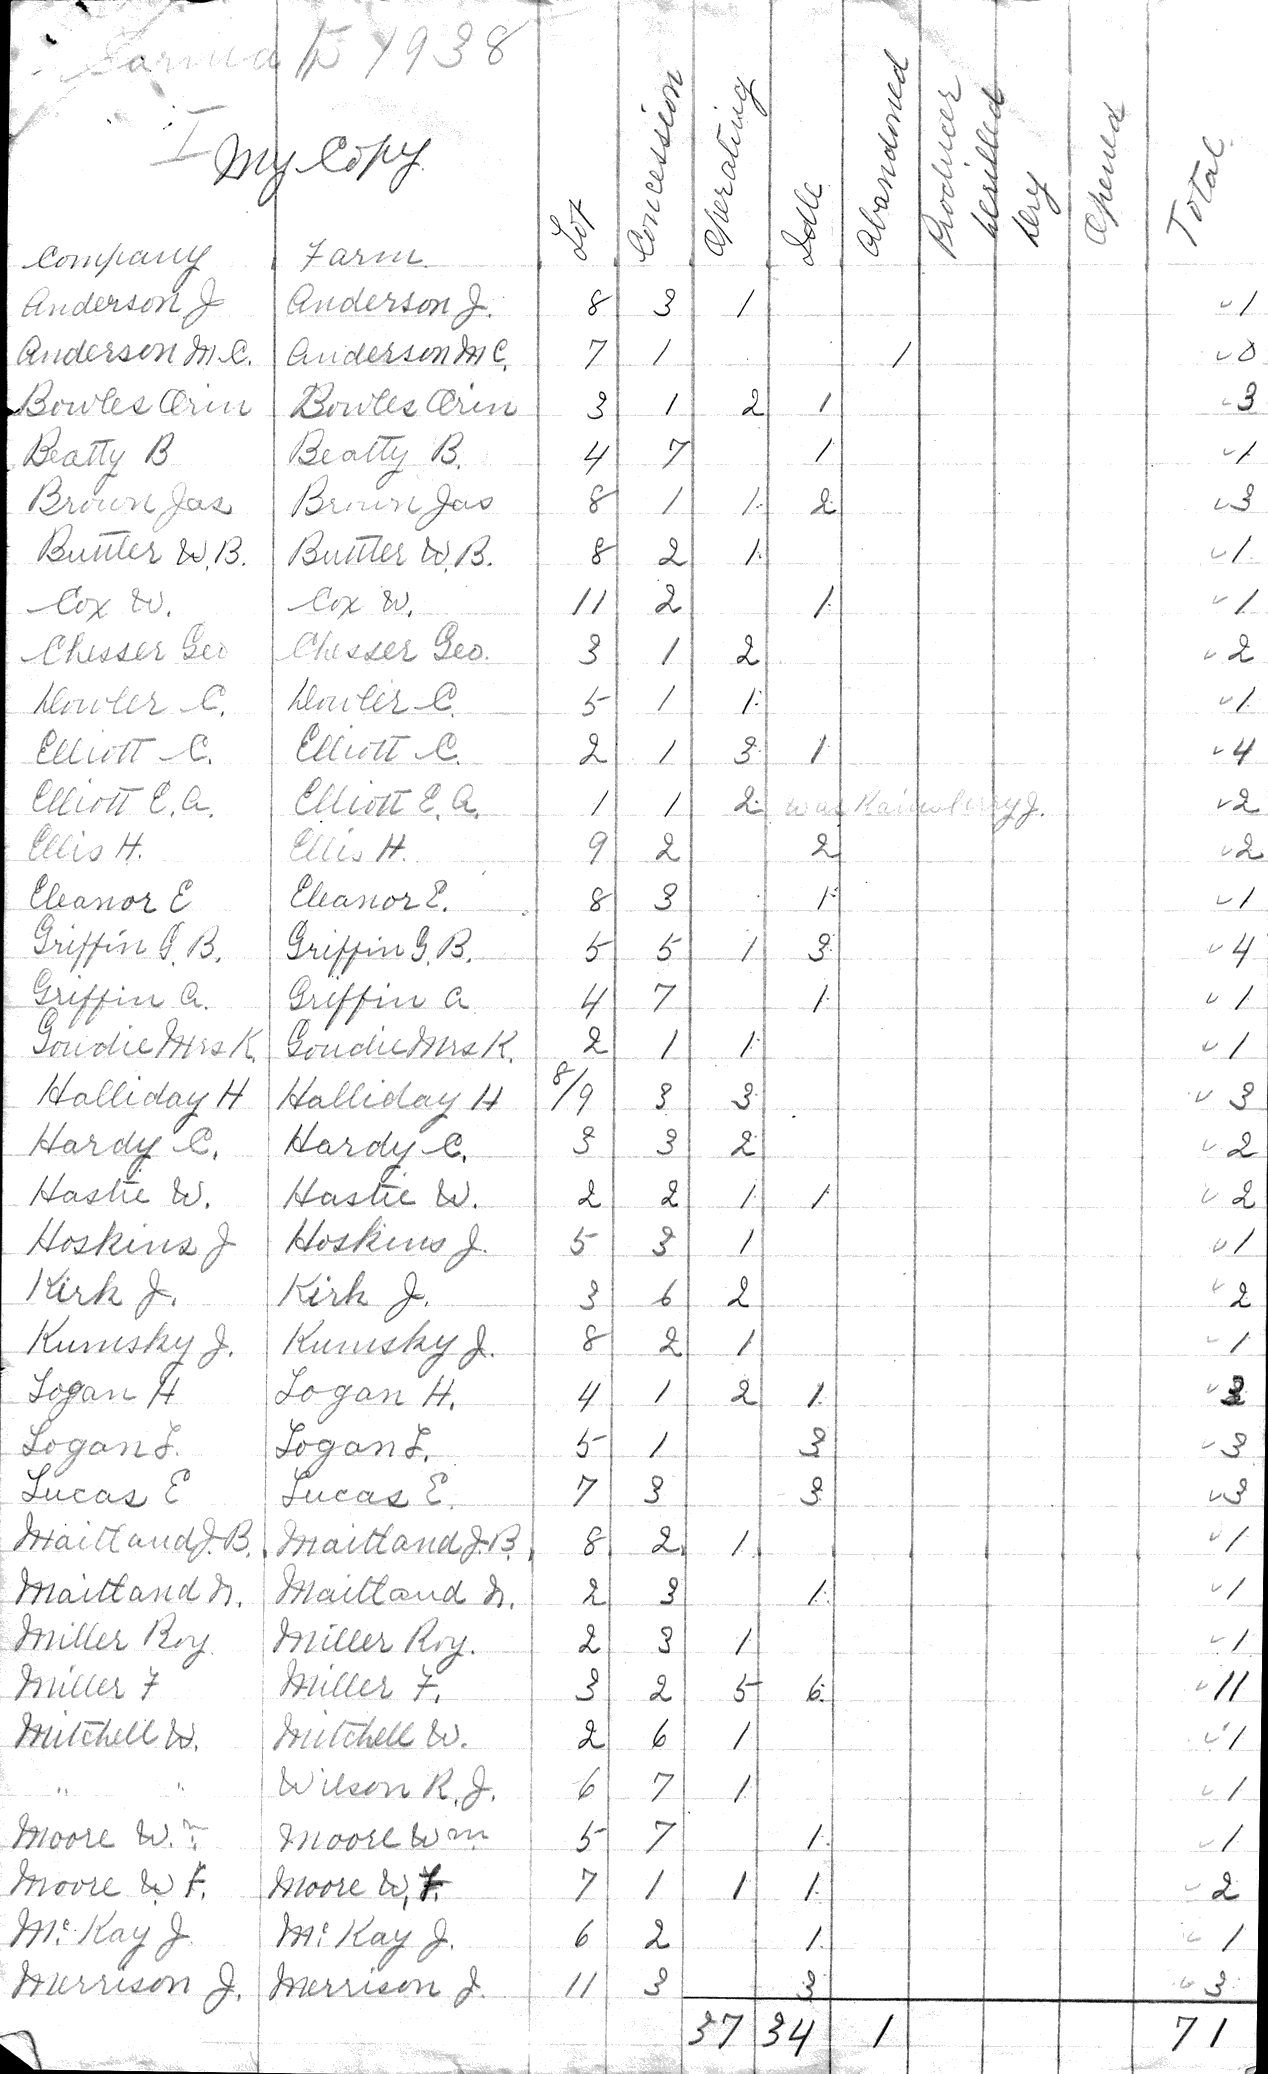 Sarnia 1938
I My Copy
Company Farm Lot Concession Operating Idle Abandoned Producer Drilled Dry Opened Total
Anderson J Anderson J. 8 3 1 1
Anderson M.C. Anderson M C. 7 1 1 0
Bowles Orin Bowles Orin 3 1 2 1 3
Beatty B Beatty B. 4 7 1 1
Brown Jas Brown Jas 8 1 1 2 3
Buttler W.B. Buttler W.B. 8 2 1 1
Cox W. Cox W. 11 2 1 1
Chesser Geo Chesser Geo. 3 1 2 2
Dowler C. Dowler C. 5 1 1 1
Elliott C. Elliott C. 2 1 3 1 4
Elliott E.A. Elliott E.A. 1 1 2 was J. 2
Ellis H. Ellis H. 9 2 2 2
Eleanor E Eleanor E. 8 3 1 1
Griffin G.B. Griffin G.B. 5 5 1 3 4
Griffin A. Griffin A 4 7 1 1
Goudie Mrs K. Goudie Mrs K. 2 1 1 1
Halliday H Halliday H 8/9 3 3 3
Hardy C. Hardy C. 3 3 2 2
Hastie W. Hastie W. 2 2 1 1 2
Hoskins J Hoskins J. 5 3 1 1
Kirk J. Kirk J. 3 6 2 2
Kumsky J. Kumsky J. 8 2 1 1
Logan H Logan H. 4 1 2 1 3
Logan L. Logan L. 5 1 3 3
Lucas E Lucas E. 7 3 3 3
Maitland J.B. Maitland J.B. 8 2 1 1
Maitland N. Maitland N. 2 3 1 1
Miller Roy Miller Roy. 2 3 1 1
Miller F Miller F. 3 2 5 6 11
Mitchell W. Mitchell W. 2 6 1 1
" " Wilson R.J. 6 7 1 1
Moore Wm. Moore Wm. 5 7 1 1
Moore W F. Moore W.F. 7 1 1 1 2
McKay J. McKay J. 6 2 1 1
Merrison J. Merrison J. 11 3 3 3
37 34 1 71